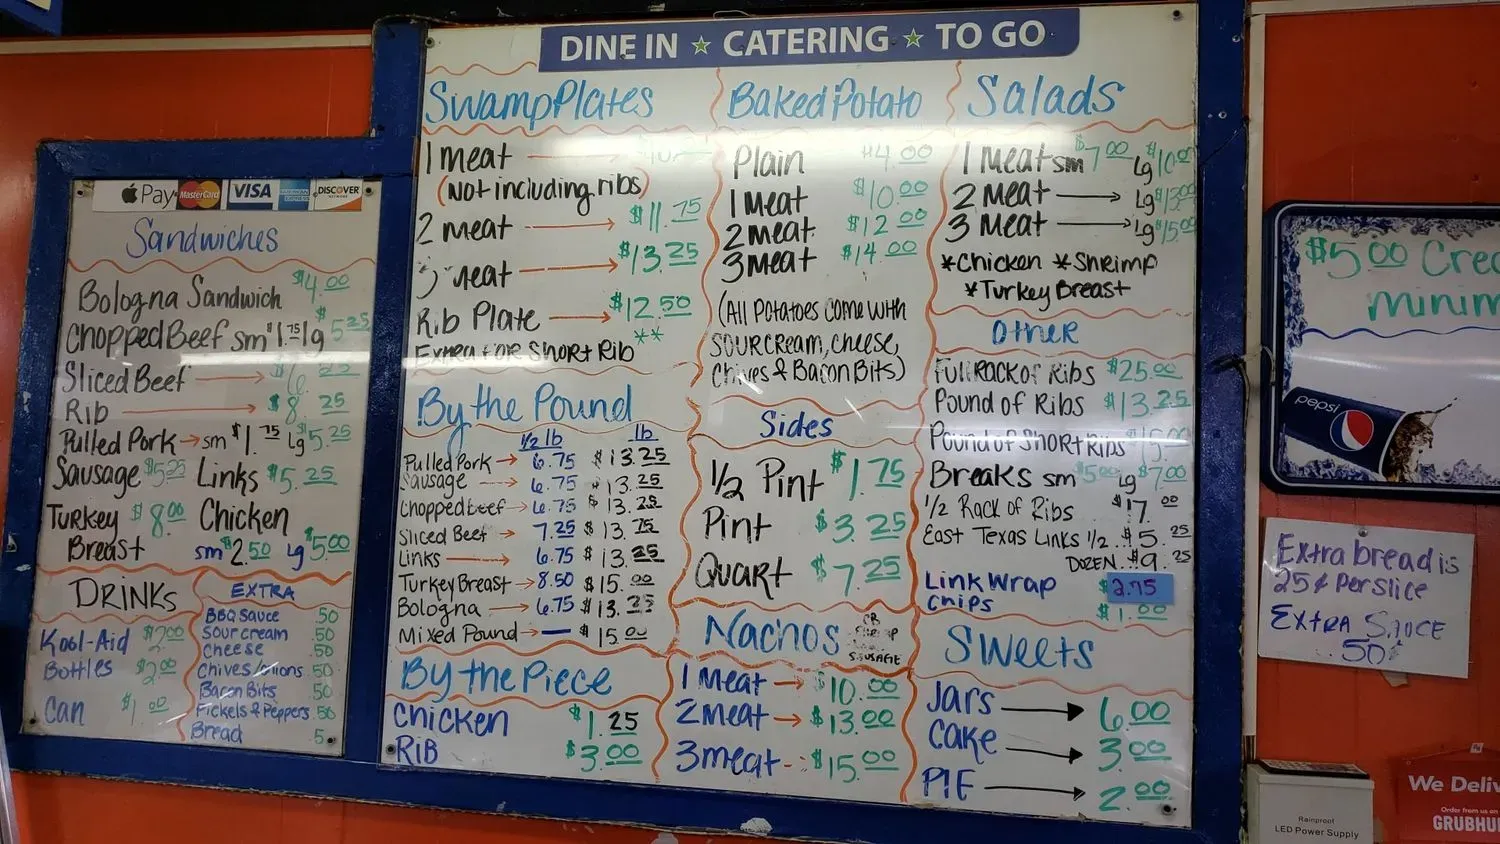 DINE IN ☆ CATERING ☆ TO GO
Pay MasterCard VISA AMERICAN EXPRESS DISCOVER
Sandwiches
Bologna Sandwich $4.00
Chopped Beef sm $1.75 lg 5.25
Sliced Beef
Rib $8.25
Pulled Pork sm $1.75 Lg $5.25
Sausage $5.25 Links $5.25
Turkey Breast $8.00
Chicken
sm $2.50 Lg $5.00
DRINKS
Kool-Aid $2.00
Bottles $2.00
Can $1.00
EXTRA
BBQ Sauce .50
Sour cream .50
Cheese .50
Chives/Onions .50
Bacon Bits .50
Pickels & Peppers .50
Bread .5
Swamp Plates
1 meat
(Not including ribs)
2 meat $11.75
meat $13.25
Rib Plate $12.50
Extra for Short Rib **
By the Pound
1/2 lb lb
Pulled Pork 6.75 $13.25
Sausage 6.75 13.25
Chopped Beef 6.75 $13.25
Sliced Beef 7.25 $13.75
Links 6.75 $13.25
Turkey Breast 8.50 $15.00
Bologna 6.75 $13.25
Mixed Pound — $15.00
By the Piece
Chicken $1.25
RIB $3.00
Baked Potato
Plain $4.00
1 Meat $10.00
2 Meat $12.00
3 Meat $14.00
(All Potatoes come with
SOUR CREAM, cheese,
Chives & Bacon Bits)
Sides
1/2 Pint $1.75
Pint $3.25
Quart $7.25
Nachos
SAUSAGE
1 Meat $10.00
2 Meat $13.00
3 meat $15.00
Salads
1 Meat sm $7.00 Lg $10.00
2 Meat Lg $13.00
3 Meat Lg $15.00
*Chicken *Shrimp
*Turkey Breast
Other
Full Rack of Ribs $25.00
Pound of Ribs $13.25
Pound of Short Ribs $15.00
Breaks sm $5.00 Lg $7.00
1/2 Rack of Ribs $17.00
East Texas Links 1/2 $5.25
DOZEN $9.25
Link Wrap $2.75
Chips $1.00
Sweets
Jars 6.00
Cake 3.00
PIE 2.00
$5.00 Cre
Minim
pepsi
Extra bread is
25¢ Per Slice
Extra Sauce
50¢
Rainproof
LED Power Supply
We Deliv
Order from us on
GRUBHU